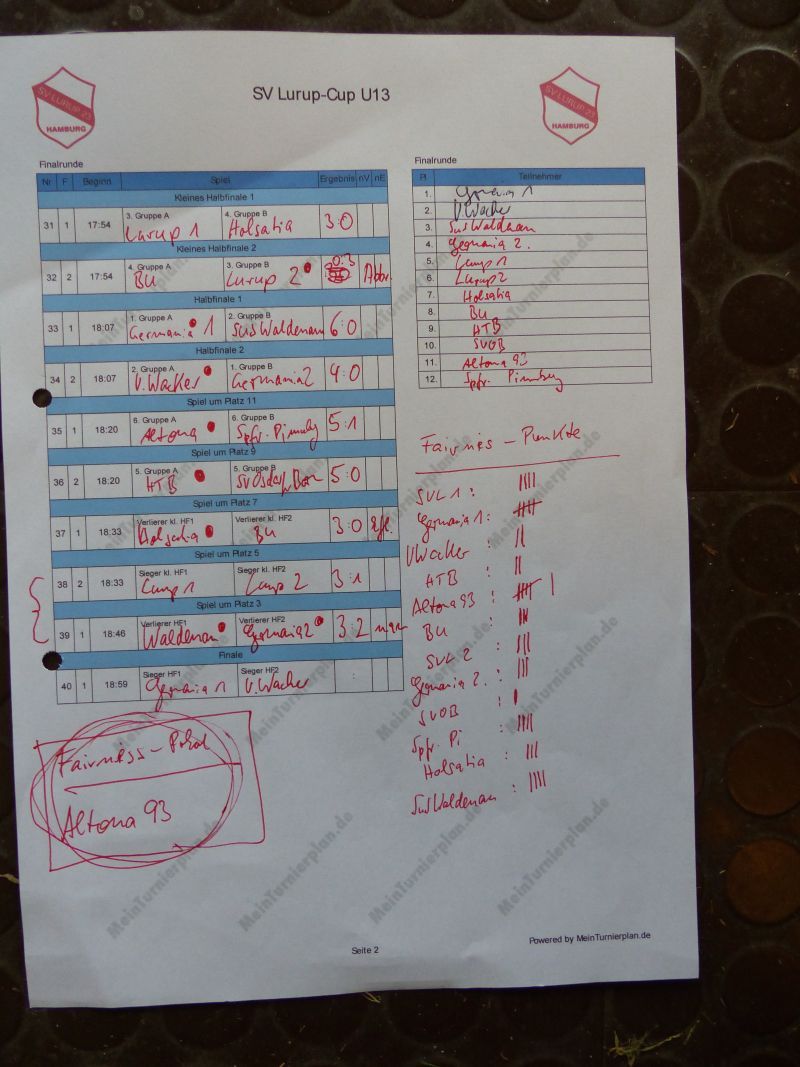 SV Lurup-Cup U13
SV LURUP 23
HAMBURG
SV LURUP 23
HAMBURG
Finalrunde
Nr F Beginn Spiel Ergebnis nV nE
Kleines Halbfinale 1
3. Gruppe A 4. Gruppe B
31 1 17:54 Lurup 1 Holsatia 3:0
Kleines Halbfinale 2
4. Gruppe A 3. Gruppe B
32 2 17:54 BU Lurup 2 0:3 Abbr.
Halbfinale 1
1. Gruppe A 2. Gruppe B
33 1 18:07 Germania 1 SuSWaldenau 6:0
Halbfinale 2
2. Gruppe A 1. Gruppe B
34 2 18:07 V.Wacker Germania2 4:0
Spiel um Platz 11
6. Gruppe A 6. Gruppe B
35 1 18:20 Altona Spfr. 5:1
Spiel um Platz 9
5. Gruppe A 5. Gruppe B
36 2 18:20 HTB SVOsdorf Born 5:0
Spiel um Platz 7
Verlierer kl. HF1 Verlierer kl. HF2
37 1 18:33 Holsatia BU 3:0
Spiel um Platz 5
Sieger kl. HF1 Sieger kl. HF2
38 2 18:33 Lurup 1 Lurup 2 3:1
Spiel um Platz 3
Verlierer HF1 Verlierer HF2
39 1 18:46 Waldenau Germania2 3:2
Finale
Sieger HF1 Sieger HF2
40 1 18:59 Germania 1 V.Wacker :
Fairness-Pokal
Altona 93
Finalrunde
Pl Teilnehmer
1. Germania 1
2. V.Wacker
3. SuSWaldenau
4. Germania 2.
5. Lurup 1
6. Lurup 2
7. Holsatia
8. BU
9. HTB
10. SVOB
11. Altona 93
12. Spfr. Pinneberg
Fairnes-Punkte
SVL 1:
Germania 1:
VWacker :
HTB :
Altona 93 :
BU :
SVL 2 :
Germania 2. :
SVOB :
Spfr. Pi :
Holsatia :
SuSWaldenau :
MeinTurnierplan.de
Seite 2
Powered by MeinTurnierplan.de